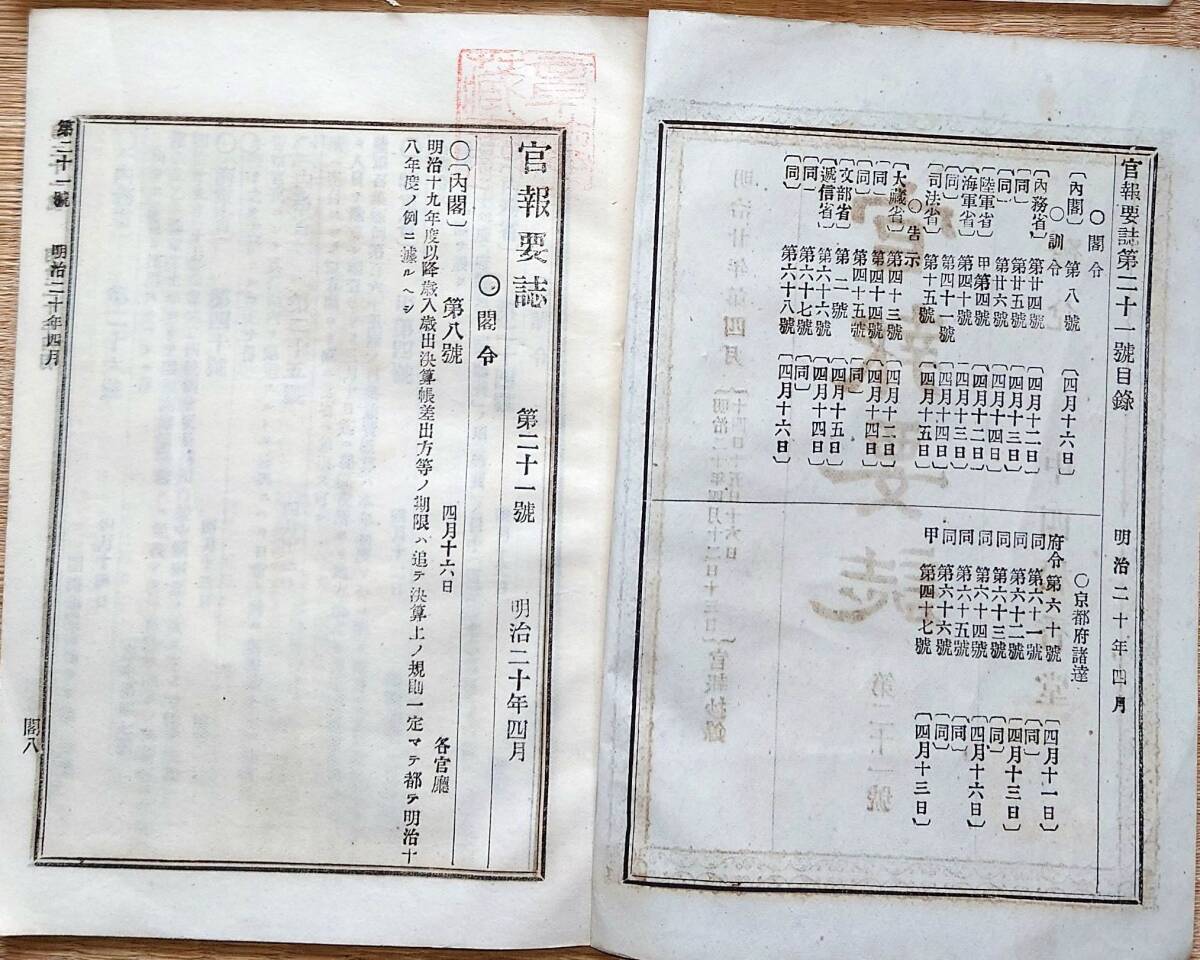 官報要誌第二十一號目錄 明治二十年四月
○閣令
〔內閣〕 第八號 〔四月十六日〕
○訓令
〔內務省〕 第廿四號 〔四月十二日〕
〔同〕 第廿五號 〔四月十三日〕
〔同〕 第廿六號 〔四月十四日〕
〔陸軍省〕 甲第四號 〔四月十二日〕
〔海軍省〕 第四十號 〔四月十三日〕
〔同〕 第四十一號 〔四月十四日〕
〔司法省〕 第十五號 〔四月十五日〕
○告示
〔大藏省〕 第四十三號 〔四月十二日〕
〔同〕 第四十四號 〔四月十四日〕
〔同〕 第四十五號 〔同〕
〔文部省〕 第一號 〔四月十五日〕
〔遞信省〕 第六十六號 〔四月十四日〕
〔同〕 第六十七號 〔同〕
〔同〕 第六十八號 〔四月十六日〕
○京都府諸達
府令第六十號 〔四月十一日〕
同 第六十一號 〔同〕
同 第六十二號 〔四月十三日〕
同 第六十三號 〔同〕
同 第六十四號 〔四月十六日〕
同 第六十五號 〔同〕
同 第六十六號 〔同〕
甲 第四十七號 〔四月十三日〕
官報要誌 第二十一號 明治二十年四月
○閣令
○〔內閣〕 第八號 四月十六日 各官廳
明治十九年度以降歲入歲出決算帳差出方等ノ期限ハ追テ決算上ノ規則一定マテ都テ明治十
八年度ノ例ニ據ルヘシ
第二十一號 明治二十年四月 閣八